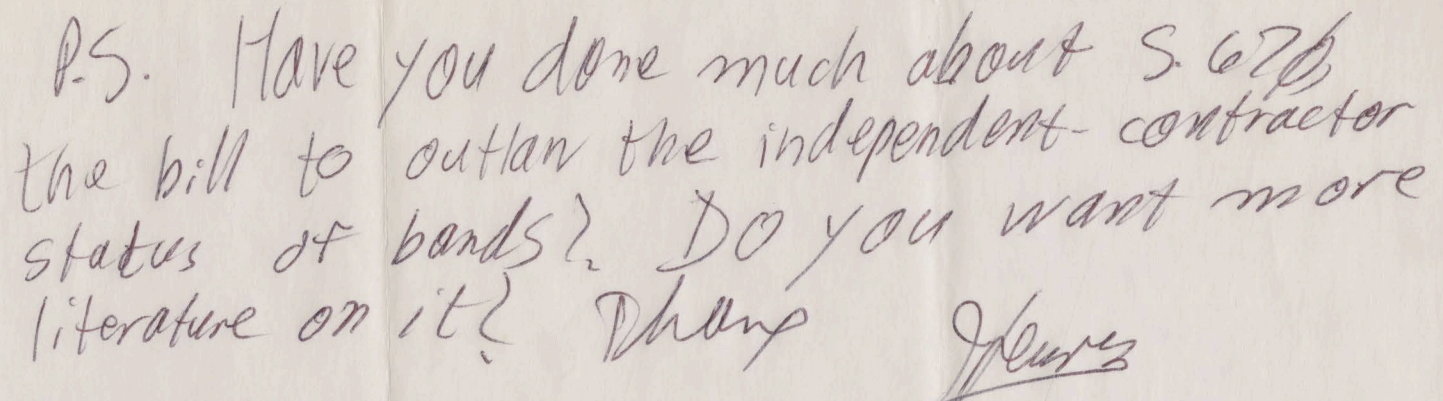 P.S. Have you done much about S. 678,
the bill to outlaw the independent-contractor
status of bands? Do you want more
literature on it? Thanx